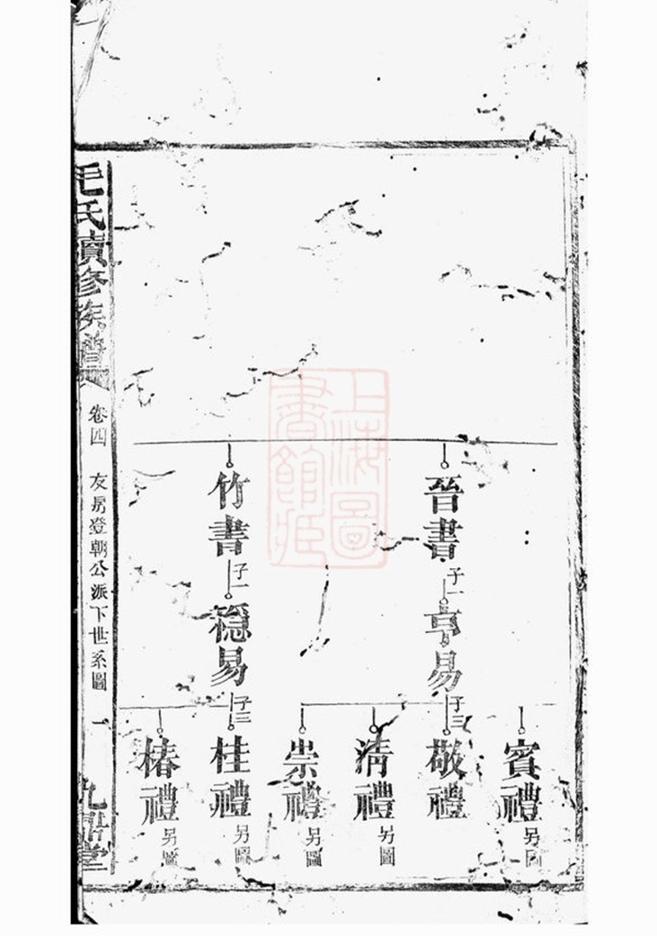 晉書
子一
亨易
子三
賓禮
另圖
敬禮
清禮
另圖
竹書
子一
穩易
子三
崇禮
另圖
桂禮
另圖
椿禮
另圖
毛氏續修族譜
卷四
友易登朝公派下世系圖
一
九㽬堂
上海圖書館藏